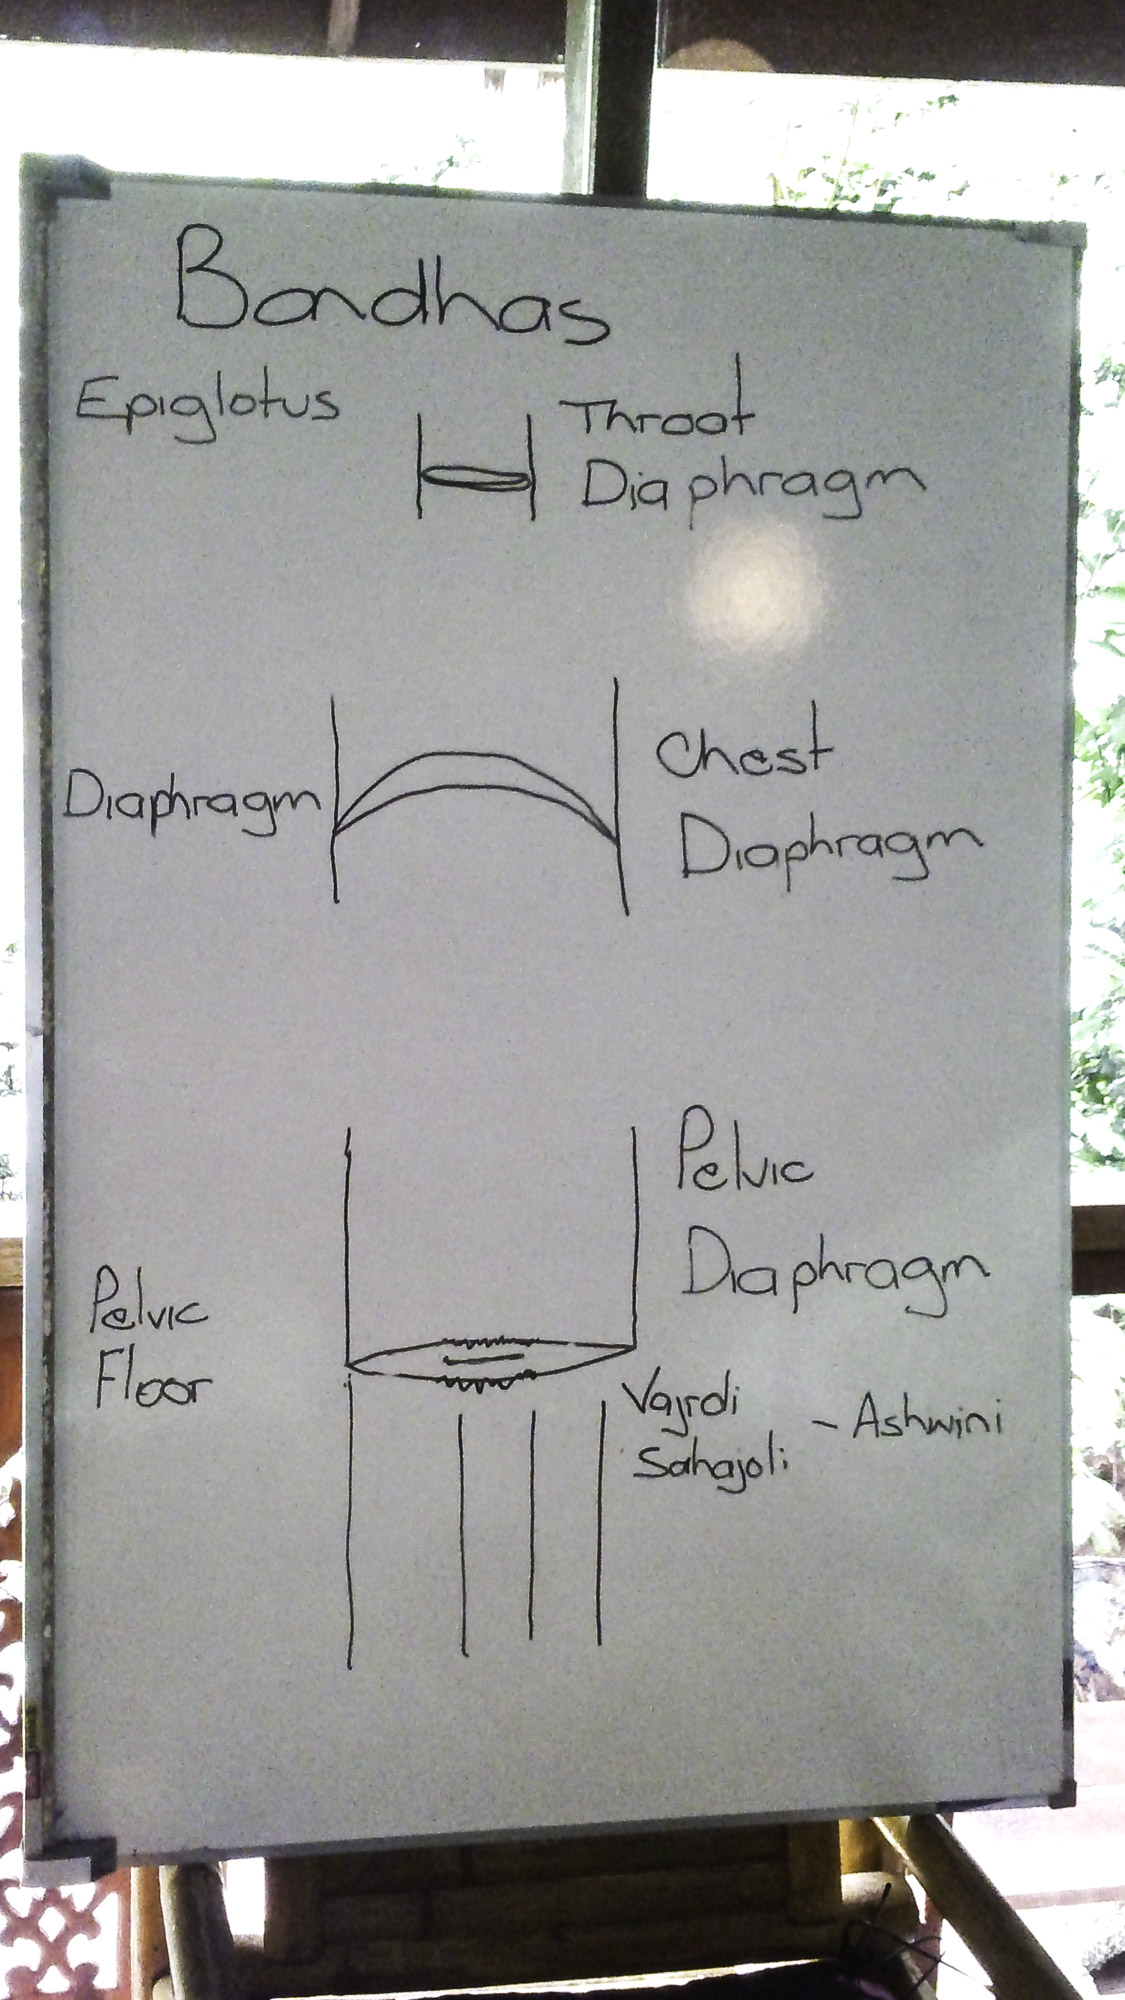 Bandhas
Epiglotus
Throat
Diaphragm
Diaphragm
Chest
Diaphragm
Pelvic
Diaphragm
Pelvic
Floor
Vajrdi
Sahajoli - Ashwini